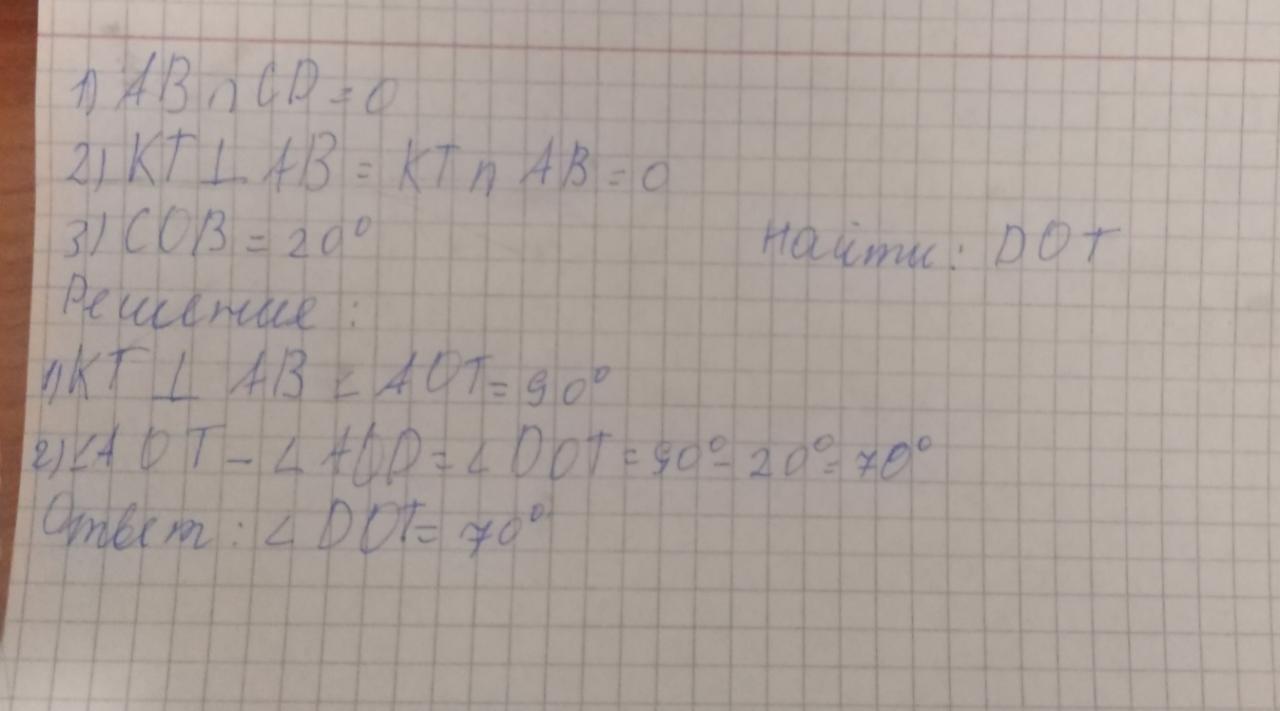 1) AB ∩ CD = 0
2) KT ⊥ AB = KT ∩ AB = 0
3) COB = 20° Найти: DOT
Решение:
1) KT ⊥ AB ∠ AOT = 90°
2) ∠AOT - ∠AOD = ∠DOT = 90° - 20° = 70°
Ответ: ∠DOT = 70°